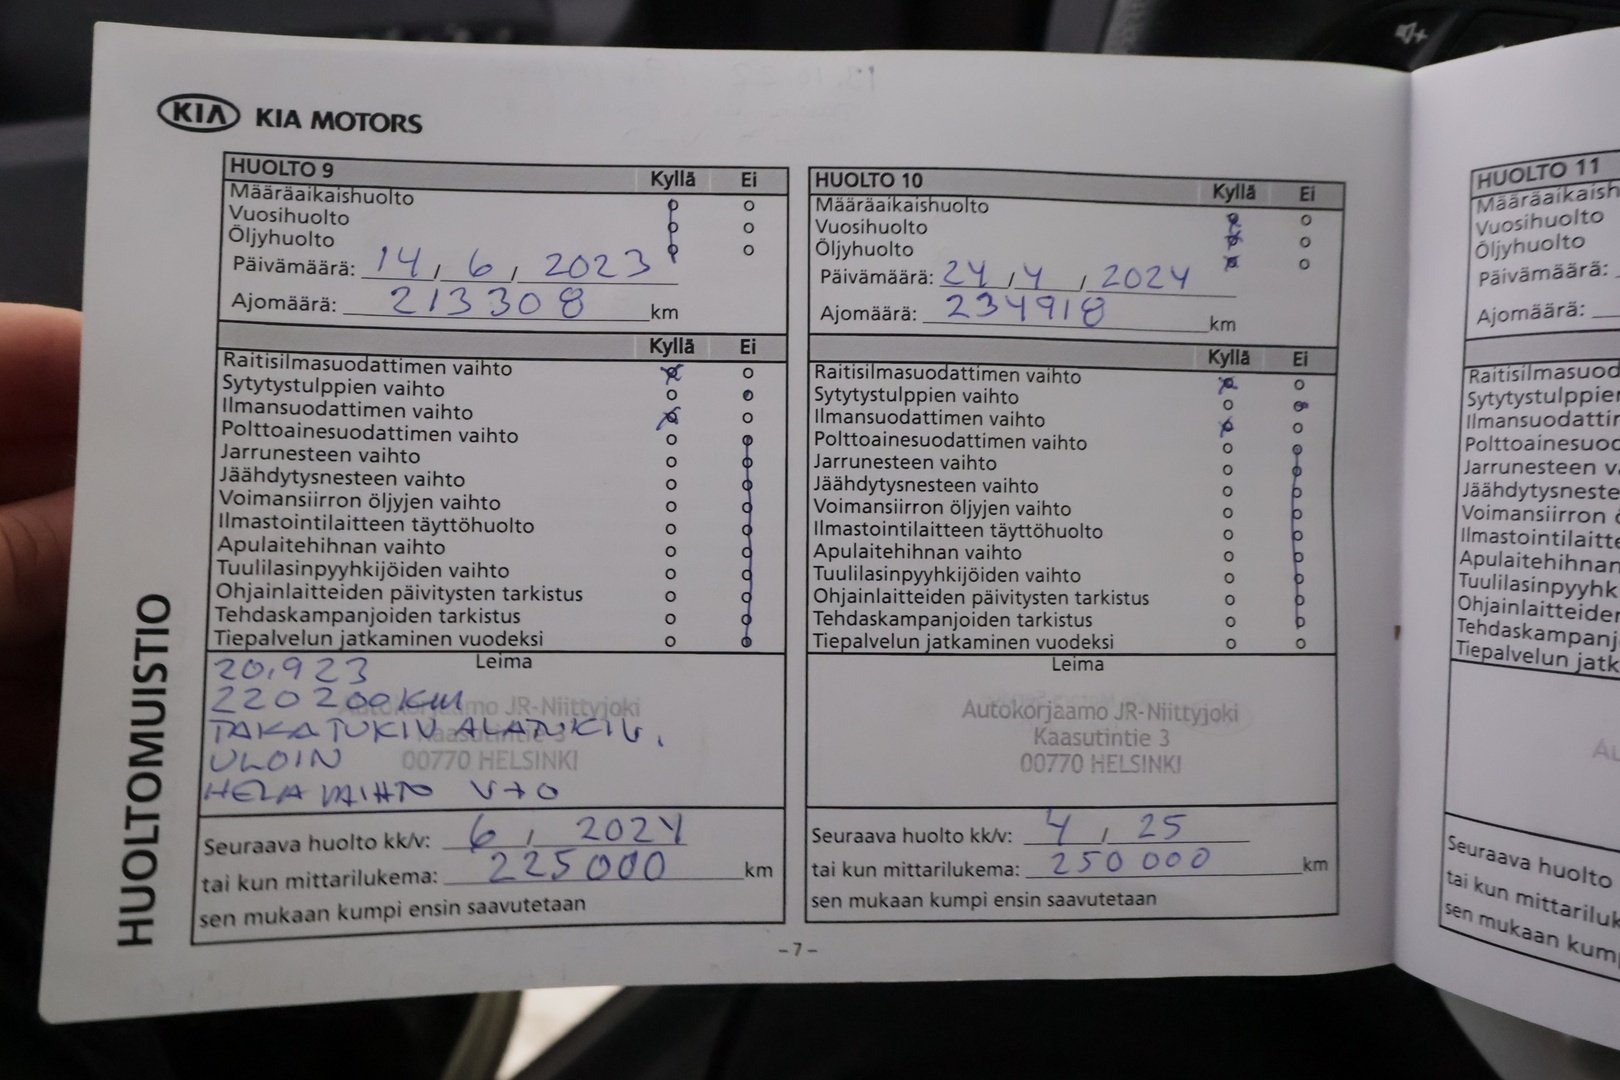 KIA KIA MOTORS
HUOLTOMUISTIO
HUOLTO 9 Kyllä Ei
Määräaikaishuolto
Vuosihuolto
Öljyhuolto
Päivämäärä: 14 / 6 / 2023
Ajomäärä: 213308 km
Kyllä Ei
Raitisilmasuodattimen vaihto
Sytytystulppien vaihto
Ilmansuodattimen vaihto
Polttoainesuodattimen vaihto
Jarrunesteen vaihto
Jäähdytysnesteen vaihto
Voimansiirron öljyjen vaihto
Ilmastointilaitteen täyttöhuolto
Apulaitehihnan vaihto
Tuulilasinpyyhkijöiden vaihto
Ohjainlaitteiden päivitysten tarkistus
Tehdaskampanjoiden tarkistus
Tiepalvelun jatkaminen vuodeksi
Leima
20.923
220200KM
Autokorjaamo JR-Niittyjoki
TAKA TUKIV ALATUKIV.
Kaasutintie 3
ULOIN
00770 HELSINKI
HELA VAIHTO V+O
Seuraava huolto kk/v: 6 / 2024
tai kun mittarilukema: 225000 km
sen mukaan kumpi ensin saavutetaan
HUOLTO 10 Kyllä Ei
Määräaikaishuolto
Vuosihuolto
Öljyhuolto
Päivämäärä: 24 / 4 / 2024
Ajomäärä: 234918 km
Kyllä Ei
Raitisilmasuodattimen vaihto
Sytytystulppien vaihto
Ilmansuodattimen vaihto
Polttoainesuodattimen vaihto
Jarrunesteen vaihto
Jäähdytysnesteen vaihto
Voimansiirron öljyjen vaihto
Ilmastointilaitteen täyttöhuolto
Apulaitehihnan vaihto
Tuulilasinpyyhkijöiden vaihto
Ohjainlaitteiden päivitysten tarkistus
Tehdaskampanjoiden tarkistus
Tiepalvelun jatkaminen vuodeksi
Leima
Autokorjaamo JR-Niittyjoki
Kaasutintie 3
00770 HELSINKI
Seuraava huolto kk/v: 4 / 25
tai kun mittarilukema: 250 000 km
sen mukaan kumpi ensin saavutetaan
- 7 -
HUOLTO 11
Määräaikaish
Vuosihuolto
Öljyhuolto
Päivämäärä:
Ajomäärä:
Raitisilmasuod
Sytytystulppie
Ilmansuodattir
Polttoainesuod
Jarrunesteen v
Jäähdytysneste
Voimansiirron
Ilmastointilaitt
Apulaitehihnan
Tuulilasinpyyhk
Ohjainlaitteider
Tehdaskampanj
Tiepalvelun jatk
Au
Seuraava huolto
tai kun mittariluk
sen mukaan kum